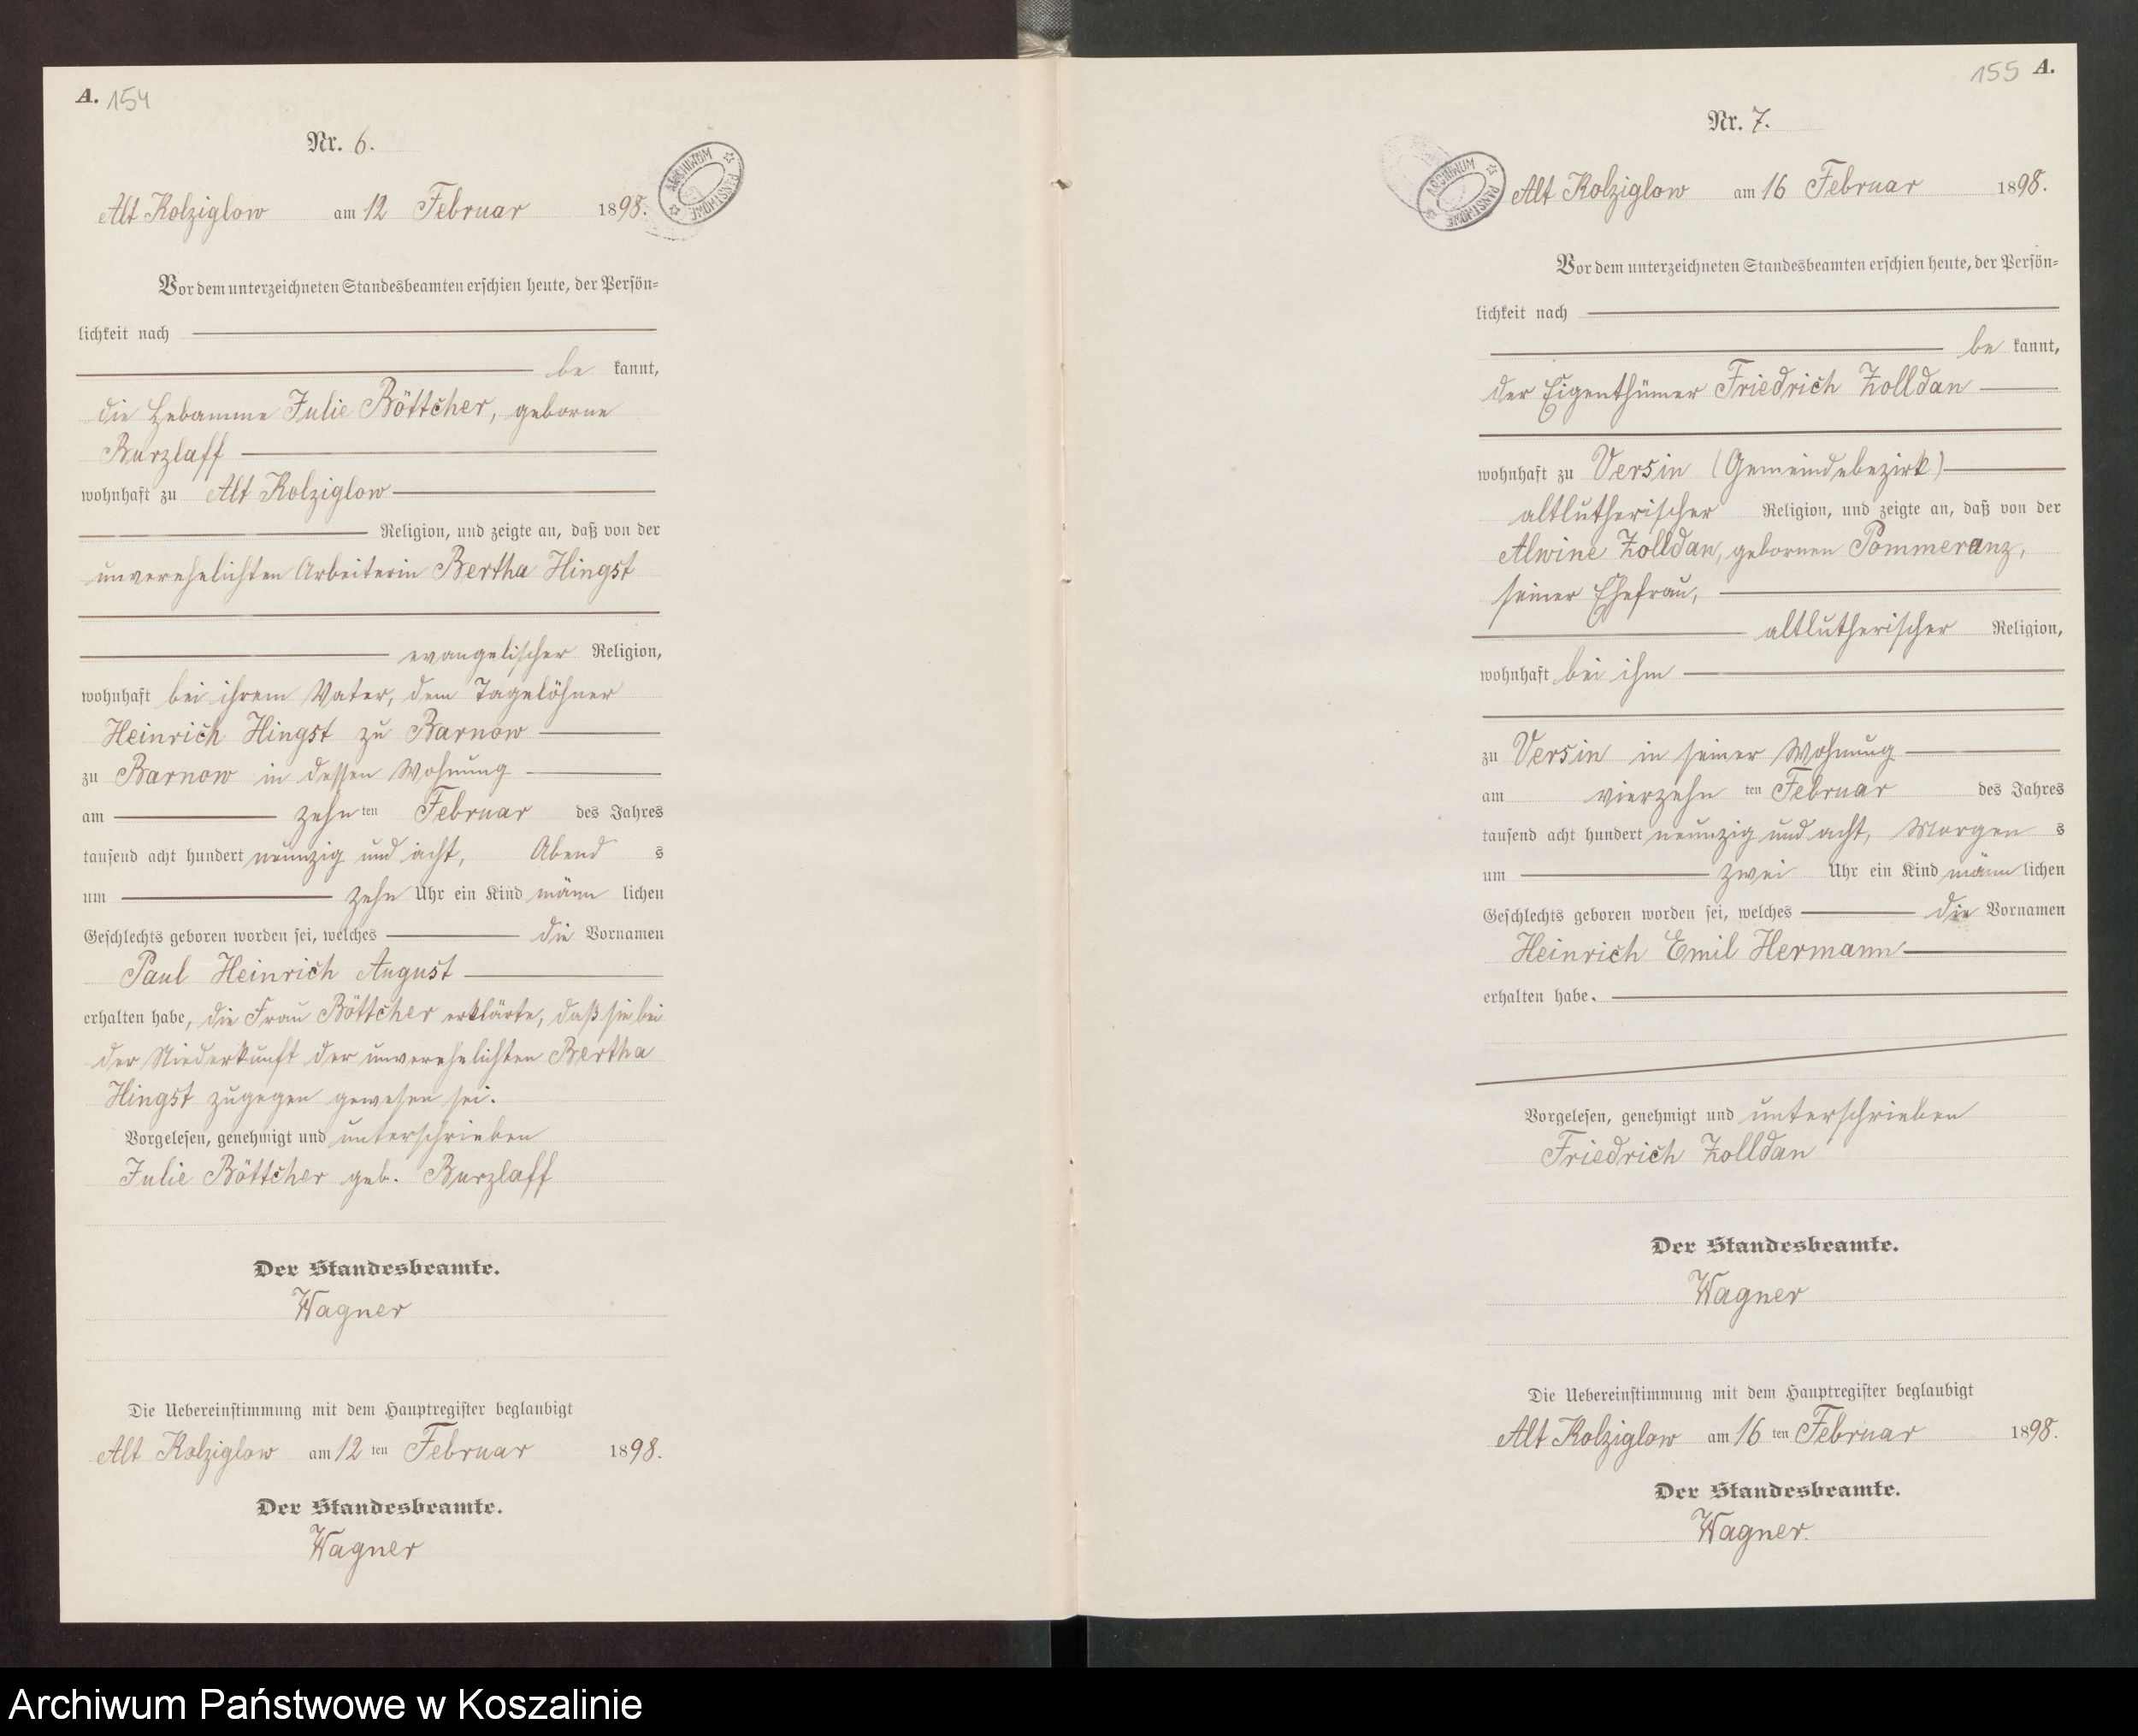 A. 154
Nr. 6.
Alt Kolziglow am 12 Februar 1898.
ARCHIWUM PAŃSTWOWE
Vor dem unterzeichneten Standesbeamten erschien heute, der Persön-
lichkeit nach
be kannt,
die Hebamme Julie Böttcher, geborne
Burzlaff
wohnhaft zu Alt Kolziglow
Religion, und zeigte an, daß von der
unverehelichten Arbeiterin Bertha Hingst
evangelischer Religion,
wohnhaft bei ihrem Vater, dem Tagelöhner
Heinrich Hingst zu Barnow
zu Barnow in dessen Wohnung
am zehn ten Februar des Jahres
tausend acht hundert neunzig und acht, Abend s
um zehn Uhr ein Kind männ lichen
Geschlechts geboren worden sei, welches die Vornamen
Paul Heinrich August
erhalten habe, die Frau Böttcher erklärte, daß sie bei
der Niederkunft der unverehelichten Bertha
Hingst zugegen gewesen sei.
Vorgelesen, genehmigt und unterschrieben
Julie Böttcher geb. Burzlaff
Der Standesbeamte.
Wagner
Die Uebereinstimmung mit dem Hauptregister beglaubigt
Alt Kolziglow am 12 ten Februar 1898.
Der Standesbeamte.
Wagner
155 A.
Nr. 7.
ARCHIWUM PAŃSTWOWE
Alt Kolziglow am 16 Februar 1898.
Vor dem unterzeichneten Standesbeamten erschien heute, der Persön-
lichkeit nach
be kannt,
der Eigenthümer Friedrich Zolldan
wohnhaft zu Versin (Gemeindebezirk)
altlutherischer Religion, und zeigte an, daß von der
Alwine Zolldan, gebornen Pommeranz,
seiner Ehefrau,
altlutherischer Religion,
wohnhaft bei ihm
zu Versin in seiner Wohnung
am vierzehn ten Februar des Jahres
tausend acht hundert neunzig und acht, Morgen s
um zwei Uhr ein Kind männ lichen
Geschlechts geboren worden sei, welches die Vornamen
Heinrich Emil Hermann
erhalten habe.
Vorgelesen, genehmigt und unterschrieben
Friedrich Zolldan
Der Standesbeamte.
Wagner
Die Uebereinstimmung mit dem Hauptregister beglaubigt
Alt Kolziglow am 16 ten Februar 1898.
Der Standesbeamte.
Wagner.
Archiwum Państwowe w Koszalinie